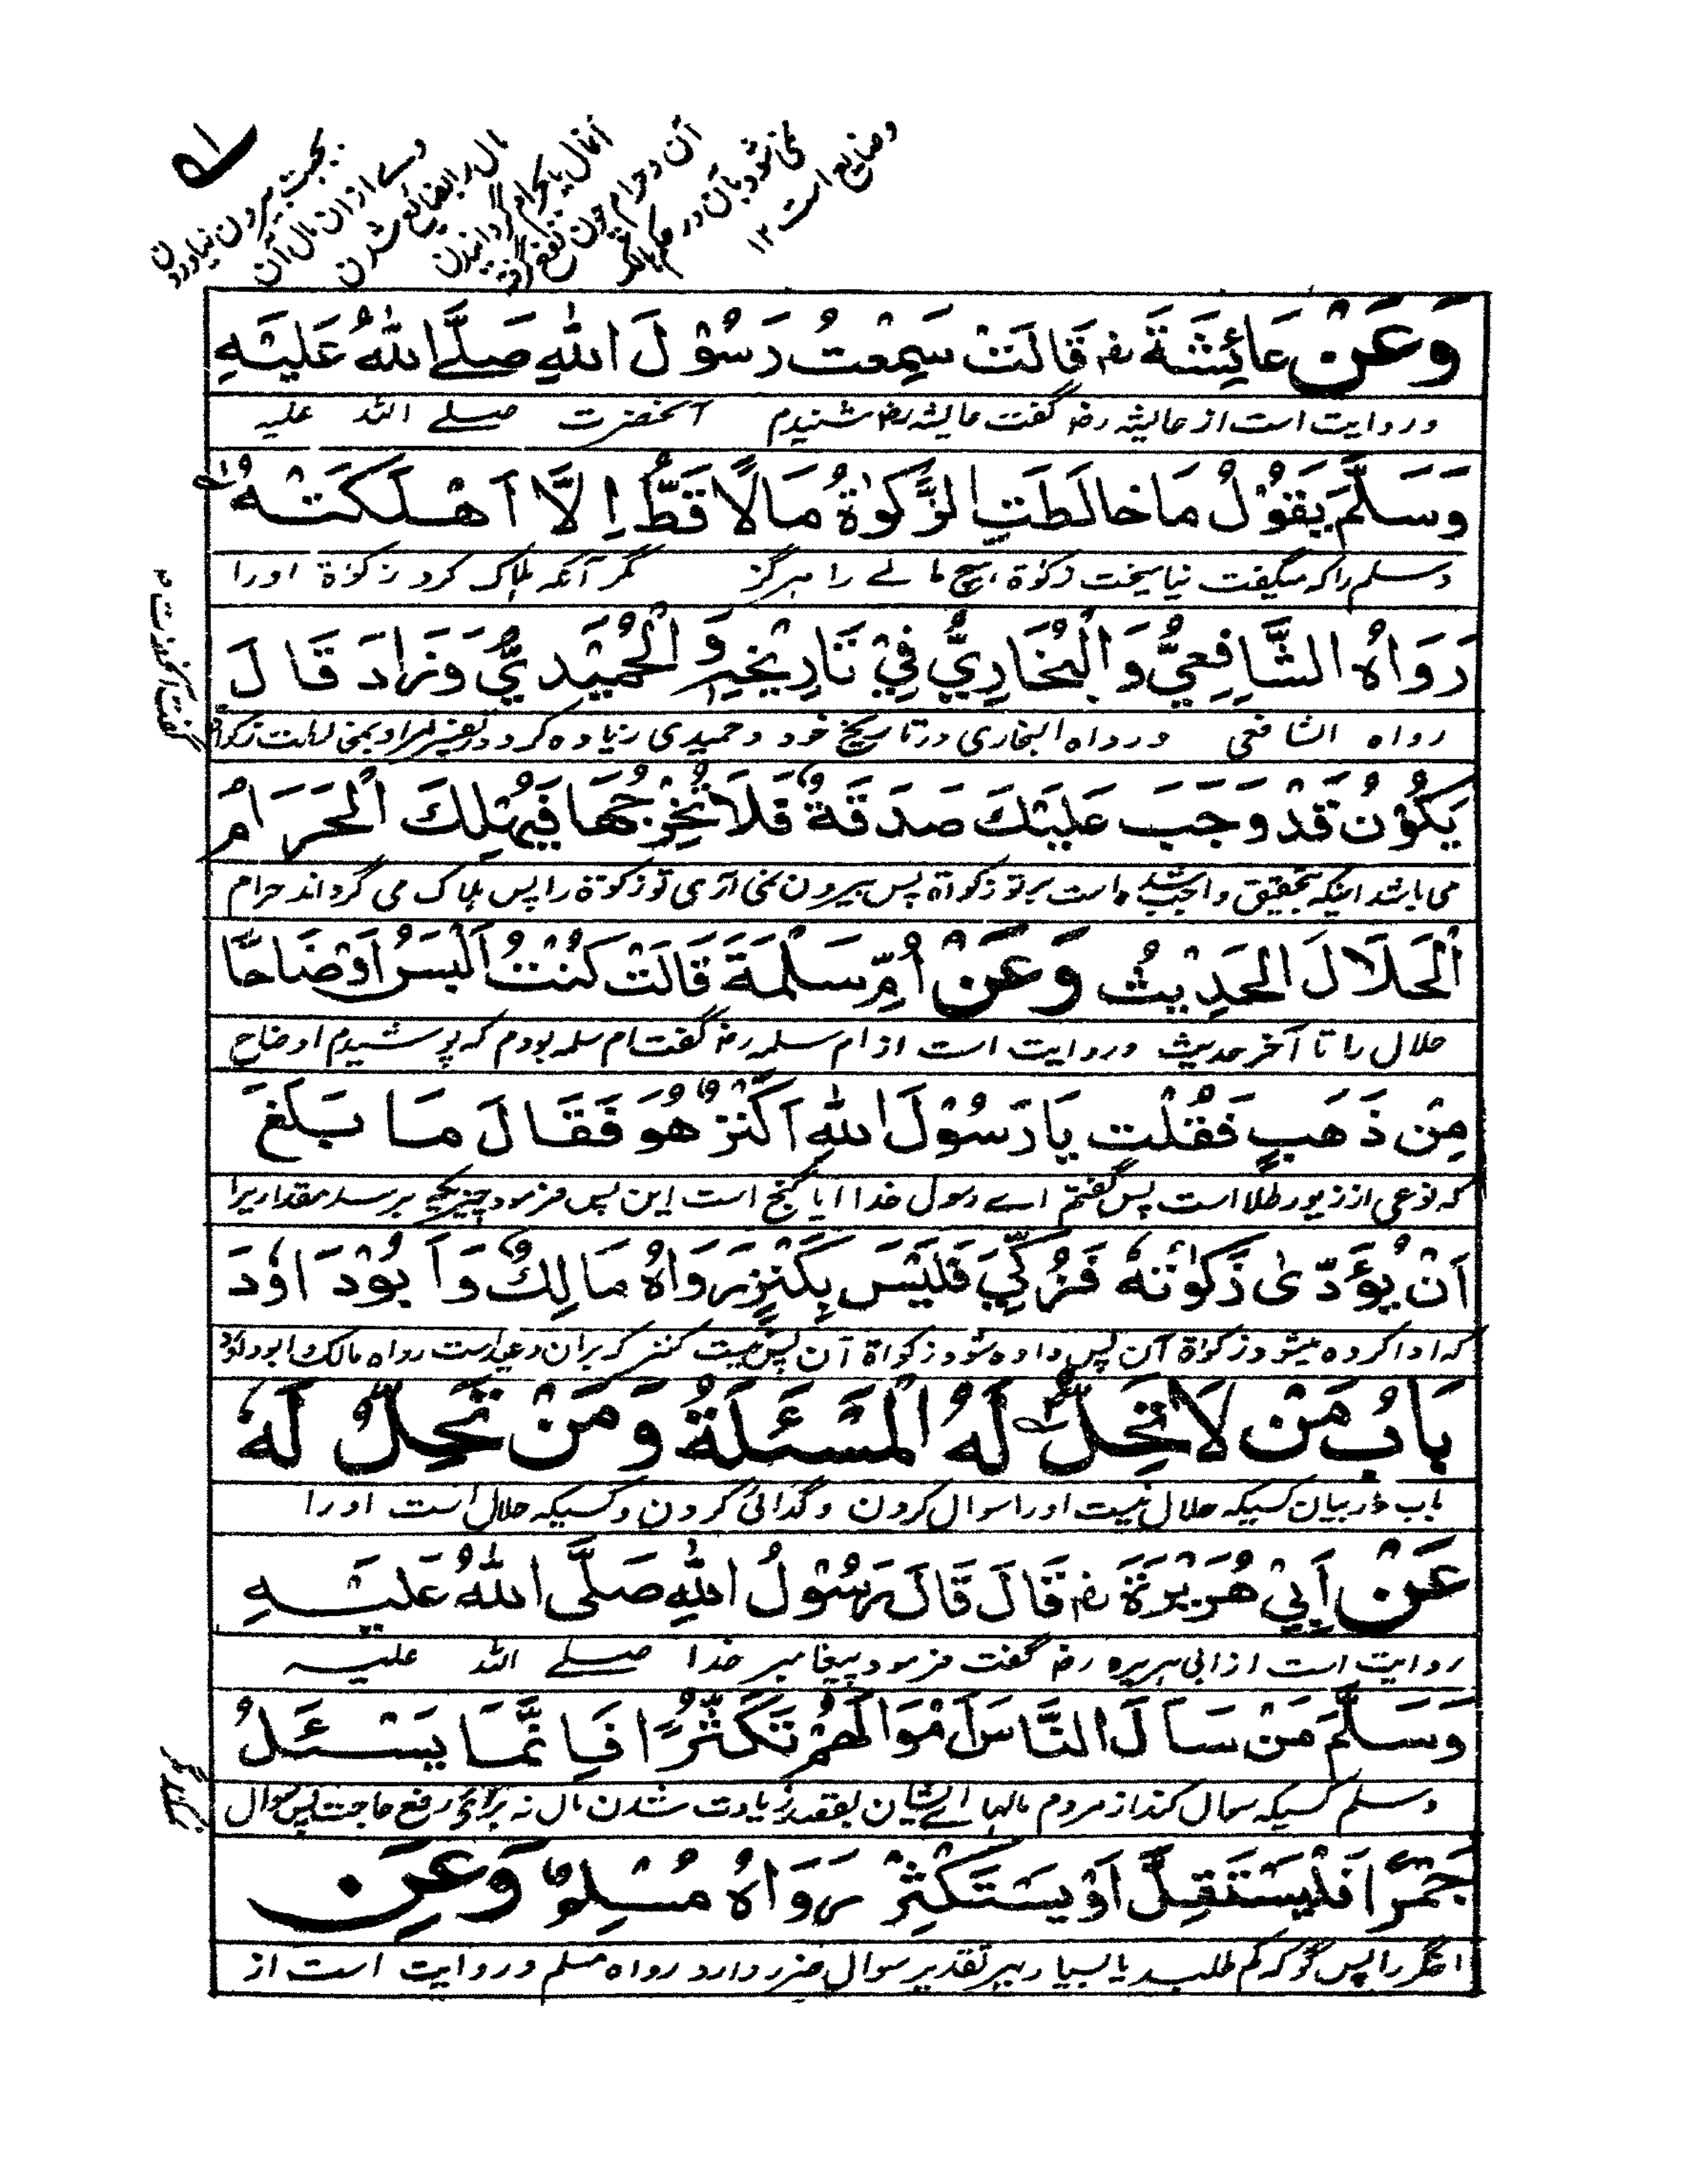 بجهت بیرون نیاوردن
وے از ان مال آن
مال را بضائع شدن
آنمال یا بحرام گردانیدن
آن و حرام چون نفع گرفته
نمی شود بآن در حکم
وضایع است ۱۲
وَعَنْ عَائِشَةَ رض قَالَتْ سَمِعْتُ رَسُوْلَ اللّٰهِ صَلَّے اللّٰهُ عَلَيْهِ
و روایت است از عایشه رض گفت عایشه رض شنیدم آنحضرت صلے اللہ علیه
وَسَلَّمَ يَقُوْلُ مَا خَالَطَتِ الزَّكٰوةُ مَالًا قَطُّ اِلَّا اَهْلَكَتْهُ
وسلم راکه میگفت نیامیخت زکوٰة هیچ مالے را هرگز مگر آنکه هلاک کرد زکوٰة اورا
رَوَاهُ الشَّافِعِيُّ وَالْبُخَارِيُّ فِيْ تَارِيْخِهٖ وَالْحُمَيْدِيُّ وَزَادَ قَالَ
رواه الشافعی ورواه البخاری در تاریخ خود و حمیدی زیاده کرد در تفسیر
يَكُوْنُ قَدْ وَجَبَ عَلَيْكَ صَدَقَةٌ فَلَا تُخْرِجُهَا فَيُهْلِكُ الْحَرَامُ
می باشد اینکه بتحقیق واجب شده است بر تو زکواة پس بیرون نمی آری تو زکوٰة را پس هلاک می گرداند حرام
الْحَلَالَ الْحَدِيْثُ وَعَنْ اُمِّ سَلَمَةَ قَالَتْ كُنْتُ اَلْبَسُ اَوْضَاحًا
حلال را تا آخر حدیث و روایت است از ام سلمه رض گفت ام سلمه بودم که پوشیدم اوضاح
مِنْ ذَهَبٍ فَقُلْتُ يَا رَسُوْلَ اللّٰهِ اَكَنْزٌ هُوَ فَقَالَ مَا بَلَغَ
که نوعی از زیور طلا است پس گفتم اے رسول خدا ایا گنج است این پس فرمود چیزیکه برسد مقدار یرا
اَنْ يُؤَدّٰى زَكٰوتُهٗ فَزُكِّيَ فَلَيْسَ بِكَنْزٍ رَوَاهُ مَالِكٌ وَاَبُوْدَاوٗدَ
که ادا کرده میشود زکوٰة آن پس داده شود زکواة آن پس نیست کنز که بران وعید است رواه مالک ابوداؤد
بَابُ مَنْ لَا تَحِلُّ لَهُ الْمَسْئَلَةُ وَمَنْ تَحِلُّ لَهٗ
باب در بیان کسیکه حلال نیست اورا سوال کردن و گدائی کردن و کسیکه حلال است اورا
عَنْ اَبِيْ هُرَيْرَةَ رض قَالَ قَالَ رَسُوْلُ اللّٰهِ صَلَّى اللّٰهُ عَلَيْهِ
روایت است از ابی هریره رض گفت فرمود پیغامبر خدا صلے اللہ علیه
وَسَلَّمَ مَنْ سَاَلَ النَّاسَ اَمْوَالَهُمْ تَكَثُّرًا فَاِنَّمَا يَسْئَلُ
وسلم کسیکه سوال کند از مردم مالها ایشان بقصد زیادت شدن مال نه برائے رفع حاجت پس سوال
جَمْرًا فَلْيَسْتَقِلَّ اَوْ يَسْتَكْثِرْ رَوَاهُ مُسْلِمٌ وَعَنِ
اخگر را پس گو که کم طلبد یا بسیار بهر تقدیر سوال ضرر دارد رواه مسلم و روایت است از
گفت آنحضرت ۳
نمیکند مگر